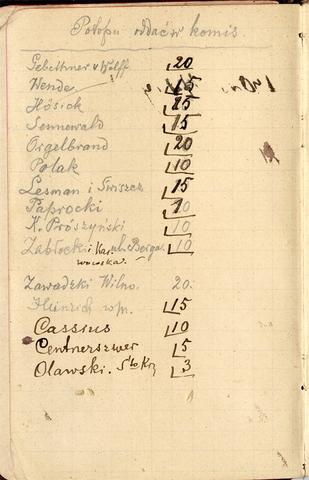 Potopu oddać w komis.
Gebethner i Wolff 20
Wende 15
Hösick 25
Sennewald 15
Orgelbrand 20
Polak 10
Lesman i Świszcz 15
Paprocki 10
K. Prószyński 10
Zabłocki i ul. Berga. 10
Zawadzki Wilno. 20.
Heinrich 15
Cassius 10
Centnerszwer 5
Olawski. Sto Krz 3